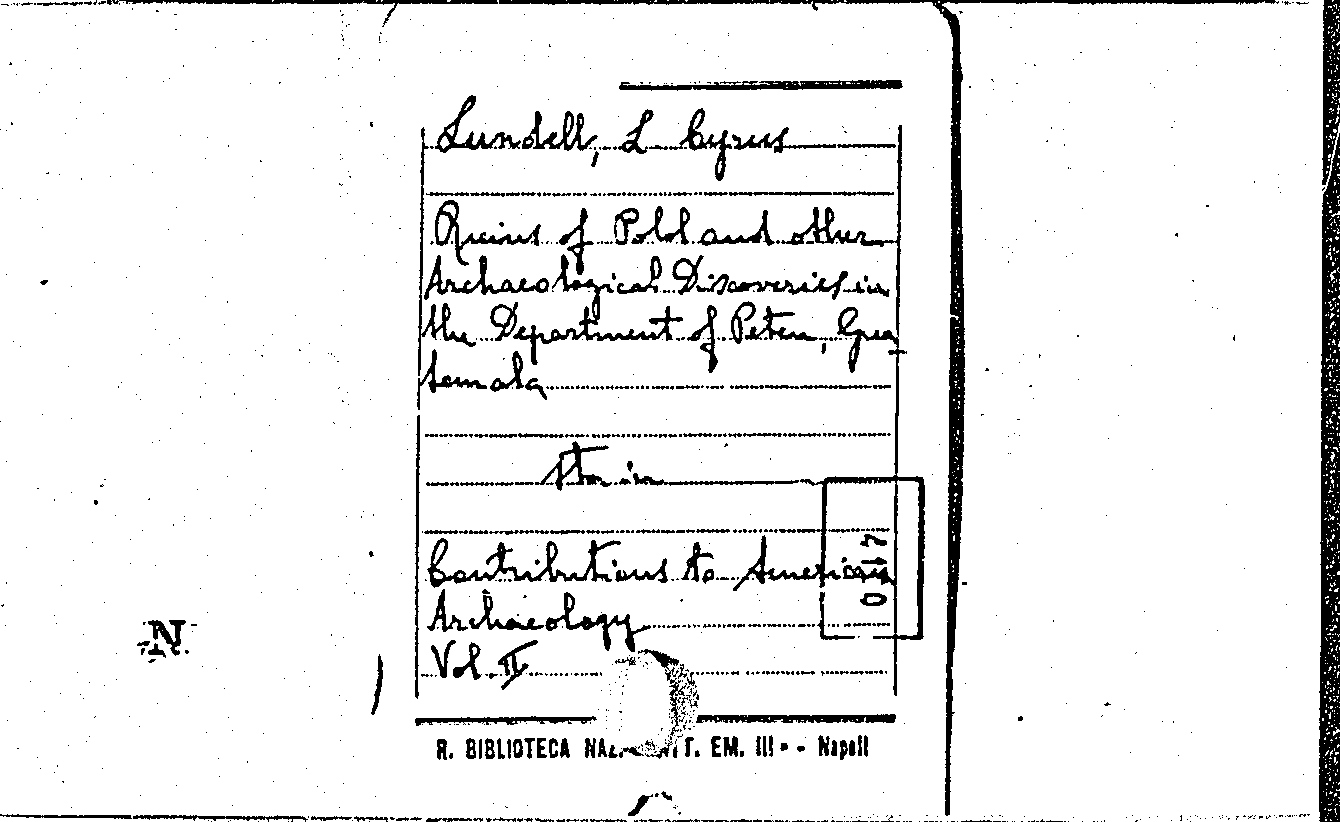 Lundell, L Cyrus
Ruins of Polol and other
Archaeological Discoveries in
the Department of Peten, Gua
temala
Sta in
Contributions to American
Archaeology
Vol. II
R. BIBLIOTECA NAZ. T. EM. III - - Napoli
N.